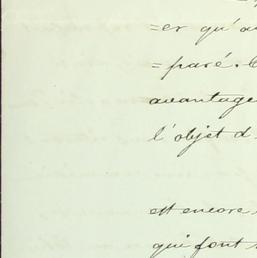 =er qu'au
=paré. C
avantage
l'objet d
est encore
qui font